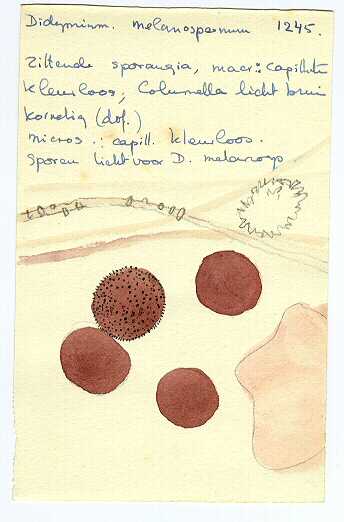 Didymium. melanospermum 1245.
Zittende sporangia, macr: capillitia
kleurloos, Columella licht bruin
korrelig (dof.)
micros.: capill. kleurloos.
Sporen licht voor D. melanosp.